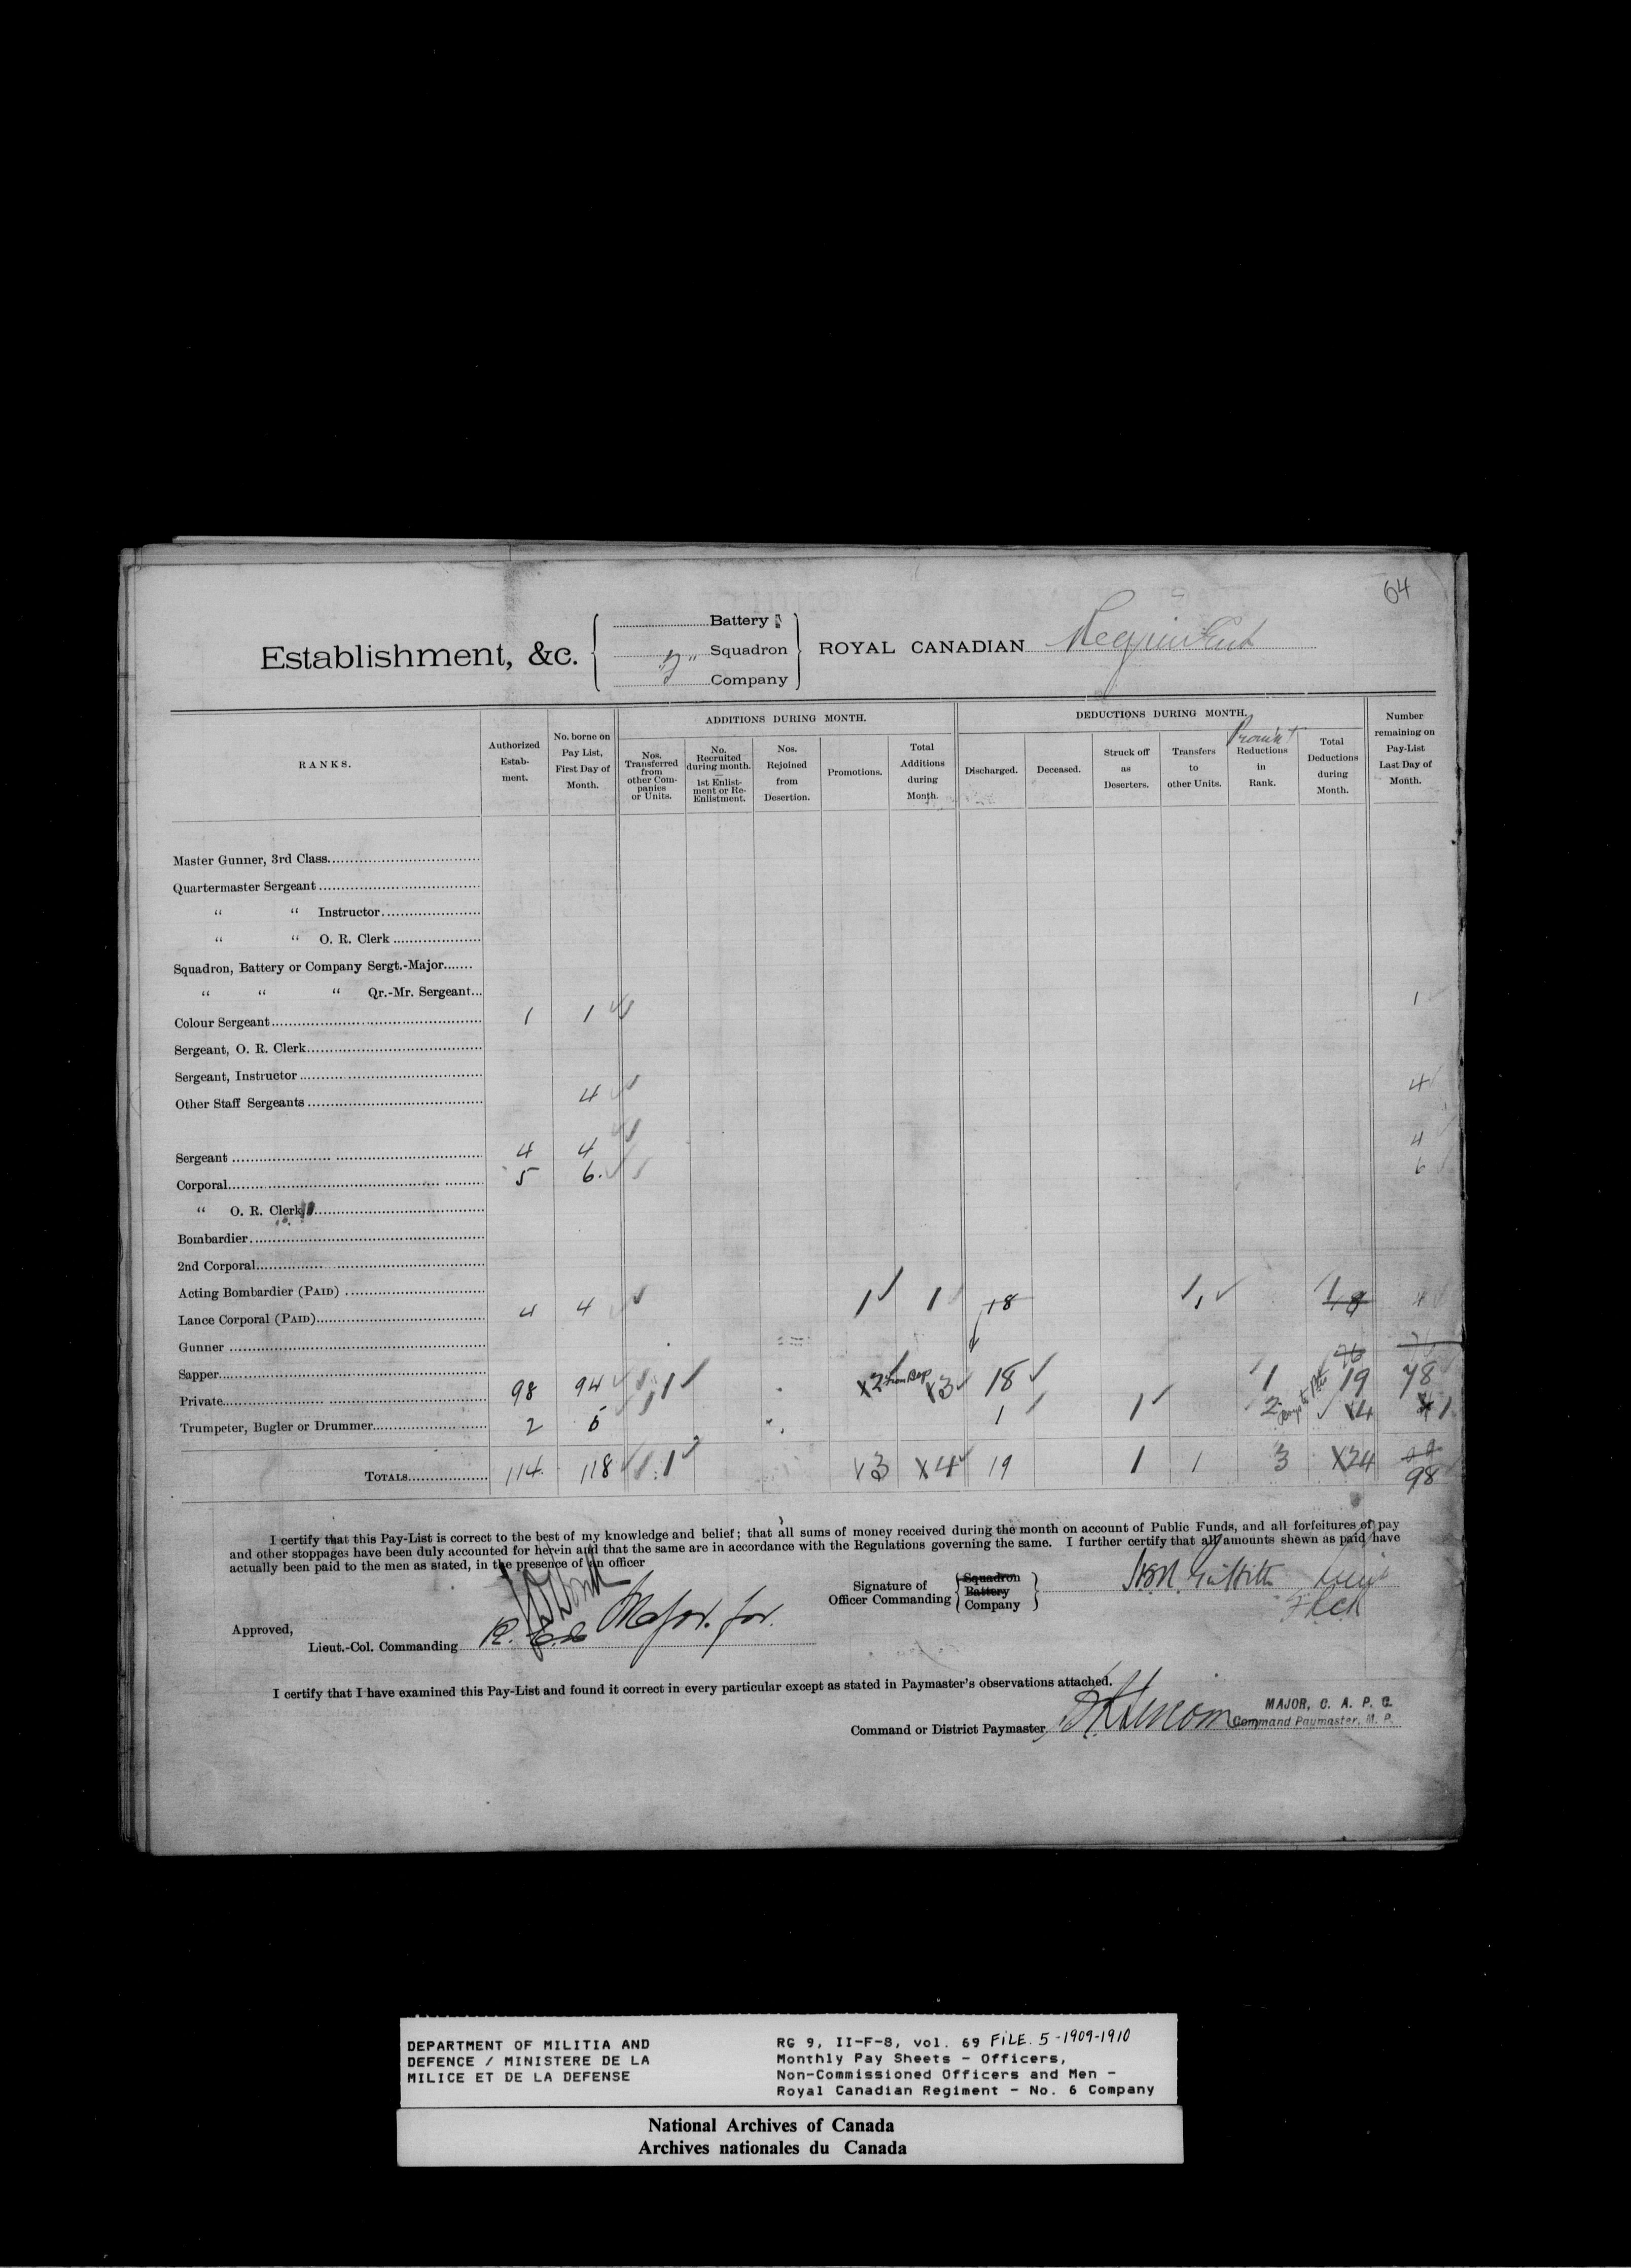 64
Battery
Establishment, &c. Squadron ROYAL CANADIAN Regiment
Company
RANKS.
Authorized Establishment.
No. borne on Pay List, First Day of Month.
ADDITIONS DURING MONTH.
Nos. Transferred from other Companies or Units.
No. Recruited during month. — 1st Enlistment or Re-Enlistment.
Nos. Rejoined from Desertion.
Promotions.
Total Additions during Month.
DEDUCTIONS DURING MONTH.
Discharged.
Deceased.
Struck off as Deserters.
Transfers to other Units.
Reductions in Rank.
Total Deductions during Month.
Number remaining on Pay-List Last Day of Month.
Master Gunner, 3rd Class
Quartermaster Sergeant
“ “ Instructor
“ “ O. R. Clerk
Squadron, Battery or Company Sergt.-Major
“ “ “ Qr.-Mr. Sergeant
Colour Sergeant 1 1 1
Sergeant, O. R. Clerk
Sergeant, Instructor
Other Staff Sergeants 4 4
Sergeant 4 4 4
Corporal 5 6 6
“ O. R. Clerk
Bombardier
2nd Corporal
Acting Bombardier (PAID)
Lance Corporal (PAID) 4 4 1 1 18 1
Gunner
Sapper
Private 98 94 1 x2 x3 18 1 19 78
Trumpeter, Bugler or Drummer 2 5 1 1 2 x4 1
TOTALS 114 118 1 x3 x4 19 1 1 3 x24 98
I certify that this Pay-List is correct to the best of my knowledge and belief; that all sums of money received during the month on account of Public Funds, and all forfeitures of pay
and other stoppages have been duly accounted for herein and that the same are in accordance with the Regulations governing the same. I further certify that all amounts shewn as paid have
actually been paid to the men as stated, in the presence of an officer
Signature of Officer Commanding Squadron Battery Company
Approved,
Lieut.-Col. Commanding Major. for.
I certify that I have examined this Pay-List and found it correct in every particular except as stated in Paymaster's observations attached.
Command or District Paymaster
MAJOR, C. A. P. C.
Command Paymaster, M. P.
DEPARTMENT OF MILITIA AND
DEFENCE / MINISTERE DE LA
MILICE ET DE LA DEFENSE
RG 9, II-F-8, vol. 69 FILE. 5-1909-1910
Monthly Pay Sheets - Officers,
Non-Commissioned Officers and Men -
Royal Canadian Regiment - No. 6 Company
National Archives of Canada
Archives nationales du Canada